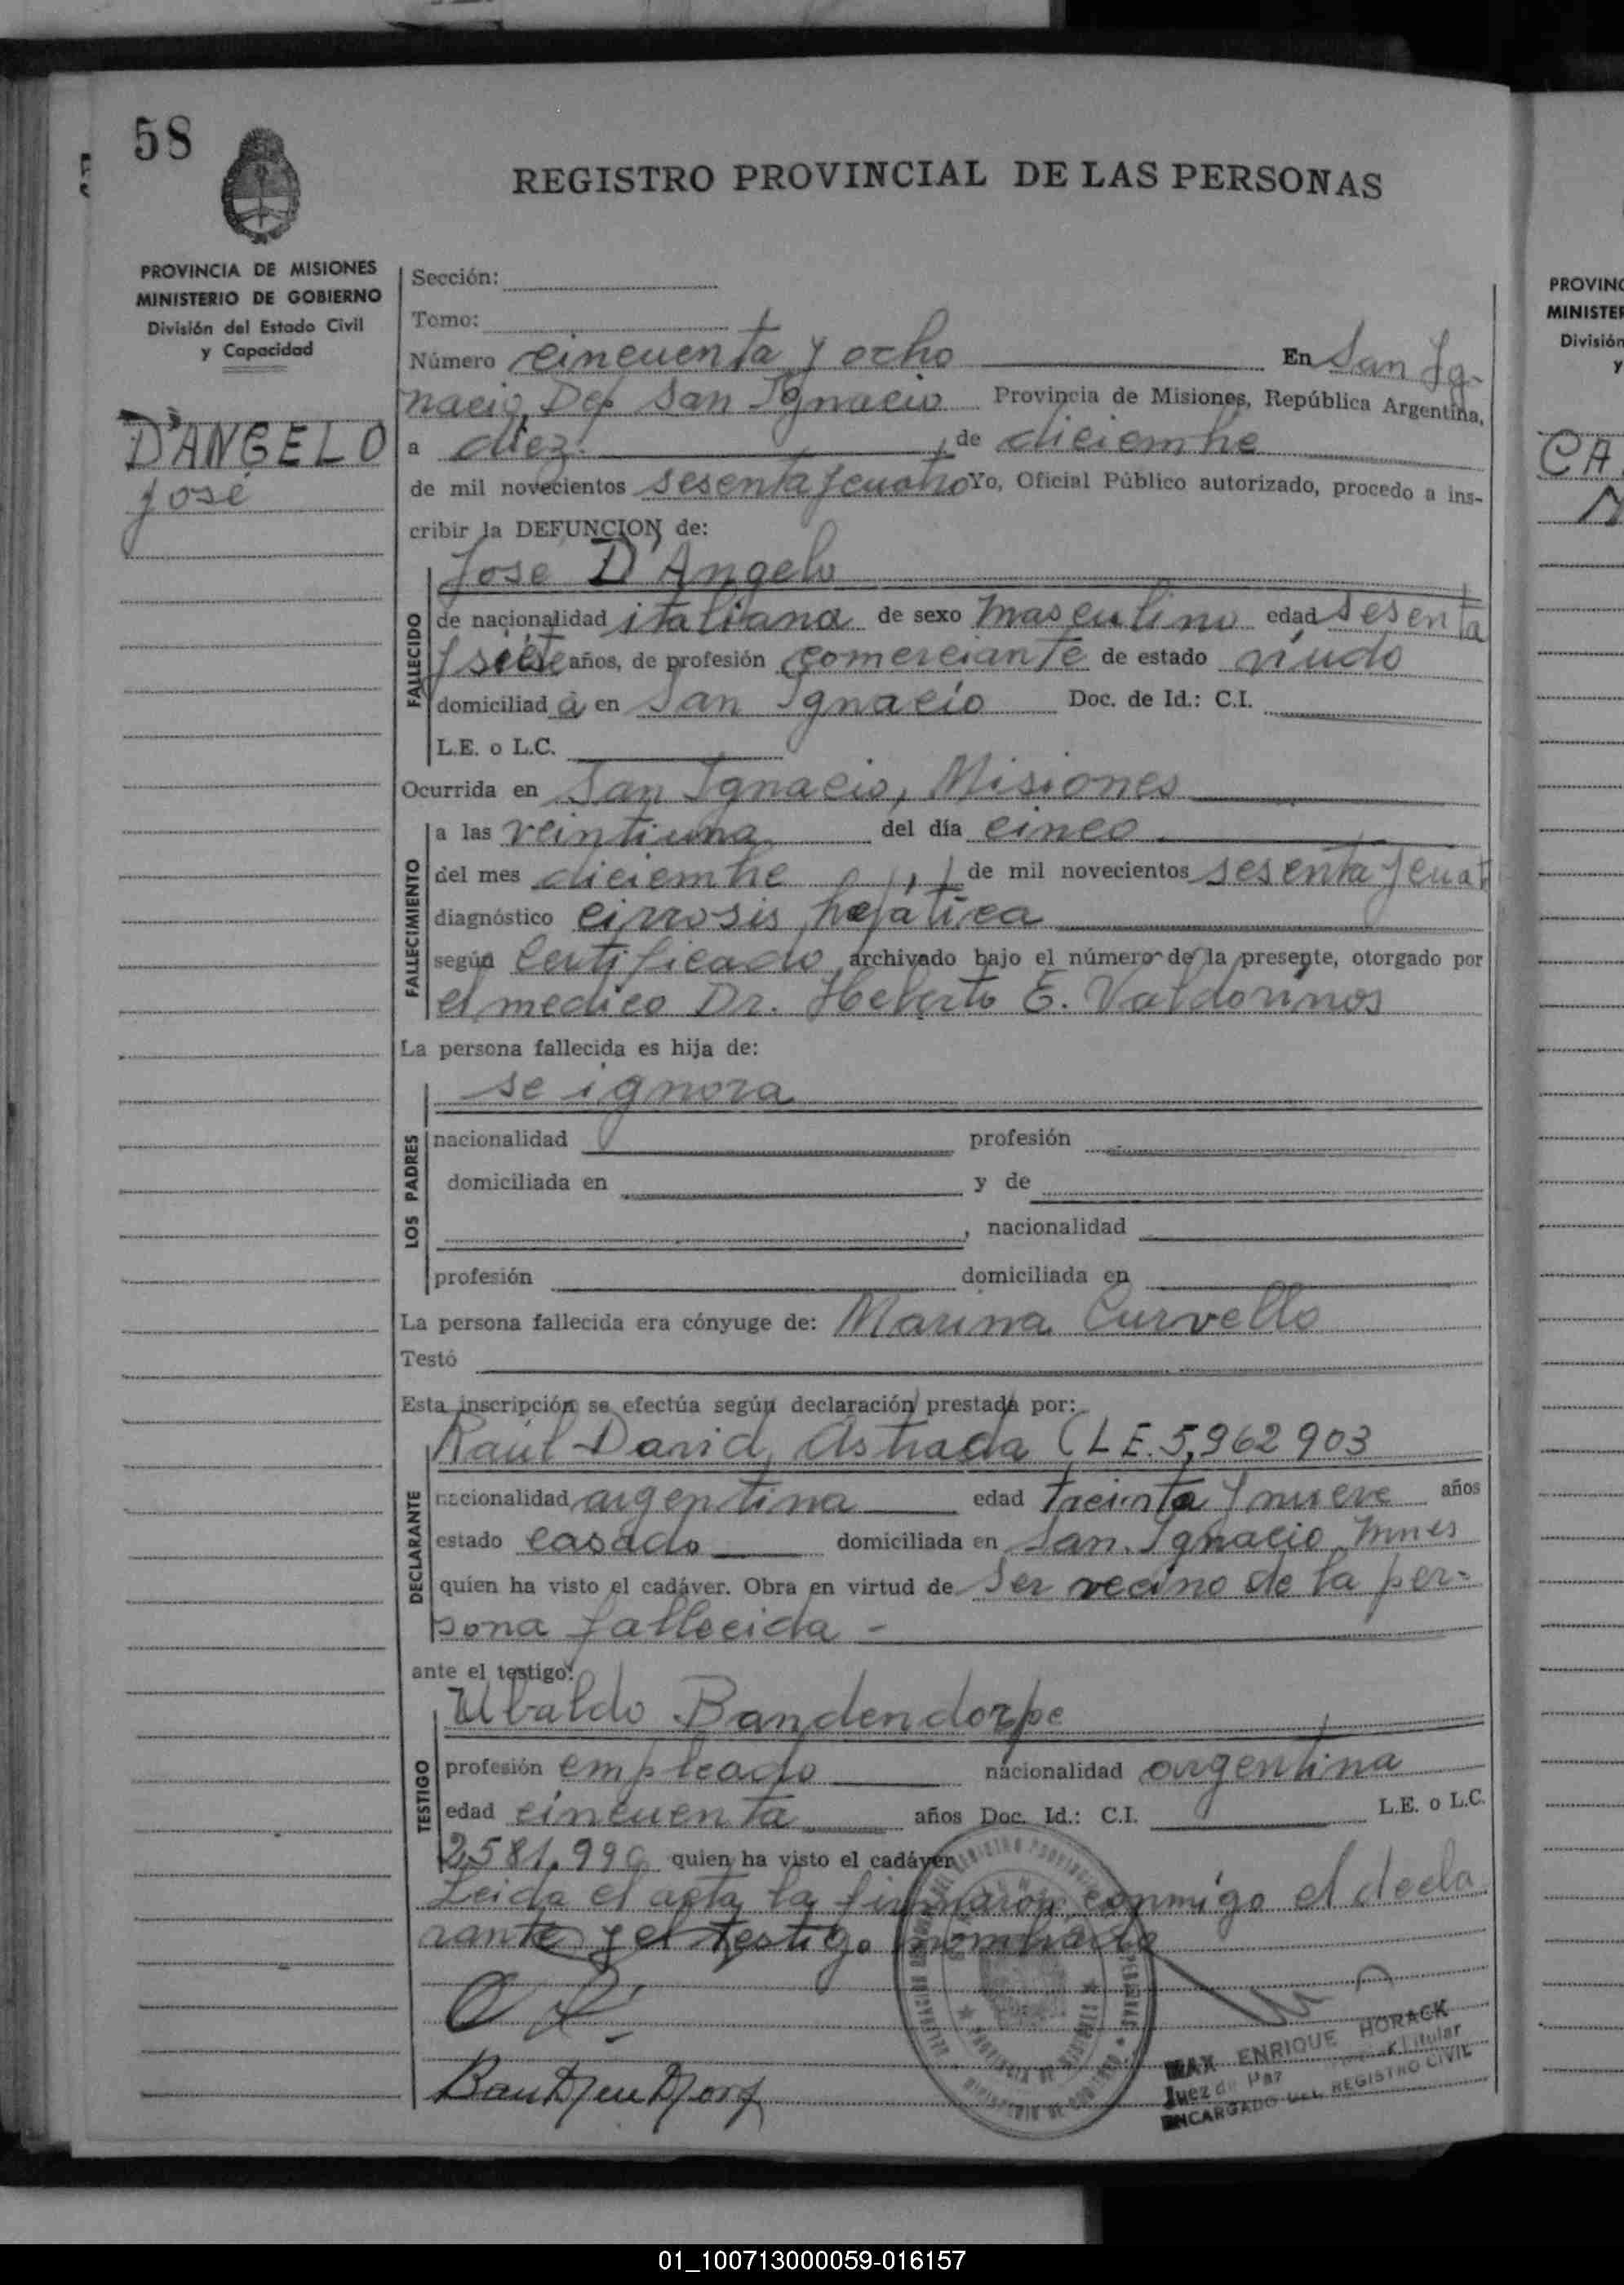 58
REGISTRO PROVINCIAL DE LAS PERSONAS
PROVINCIA DE MISIONES
MINISTERIO DE GOBIERNO
División del Estado Civil
y Capacidad
D'ANGELO
José
Sección:
Tomo:
Número cincuenta y ocho En San Ig-
nacio, Dep San Ignacio Provincia de Misiones, República Argentina,
a diez de diciembre
de mil novecientos sesenta y cuatro Yo, Oficial Público autorizado, procedo a ins-
cribir la DEFUNCION de:
José D'Angelo
FALLECIDO
de nacionalidad italiana de sexo masculino edad sesenta
y siete años, de profesión comerciante de estado viudo
domiciliad a en San Ignacio Doc. de Id.: C.I.
L.E. o L.C.
Ocurrida en San Ignacio, Misiones
FALLECIMIENTO
a las veintiuna del día cinco
del mes diciembre de mil novecientos sesenta y cuat
diagnóstico cirrosis hepatica
según Certificado archivado bajo el número de la presente, otorgado por
el medico Dr. E.
La persona fallecida es hija de:
se ignora
LOS PADRES
nacionalidad profesión
domiciliada en y de
, nacionalidad
profesión domiciliada en
La persona fallecida era cónyuge de: Marina Curvello
Testó
Esta inscripción se efectúa según declaración prestada por:
Raúl David Astrada (L E. 5,962 903
DECLARANTE
nacionalidad argentina edad treinta y nueve años
estado casado domiciliada en San Ignacio Mnes
quien ha visto el cadáver. Obra en virtud de ser vecino de la per-
sona fallecida -
ante el testigo:
Ubaldo Bandendorpe
TESTIGO
profesión empleado nacionalidad argentina
edad cincuenta años Doc. Id.: C.I. L.E. o L.C.
quien ha visto el cadáver
Leida el acta la firmaron conmigo el decla
rante y el testigo nombrado
MAX ENRIQUE HORACK
Juez de Paz Titular
ENCARGADO DEL REGISTRO CIVIL
PROVINC
MINISTER
División
y
CA
01_100713000059-016157